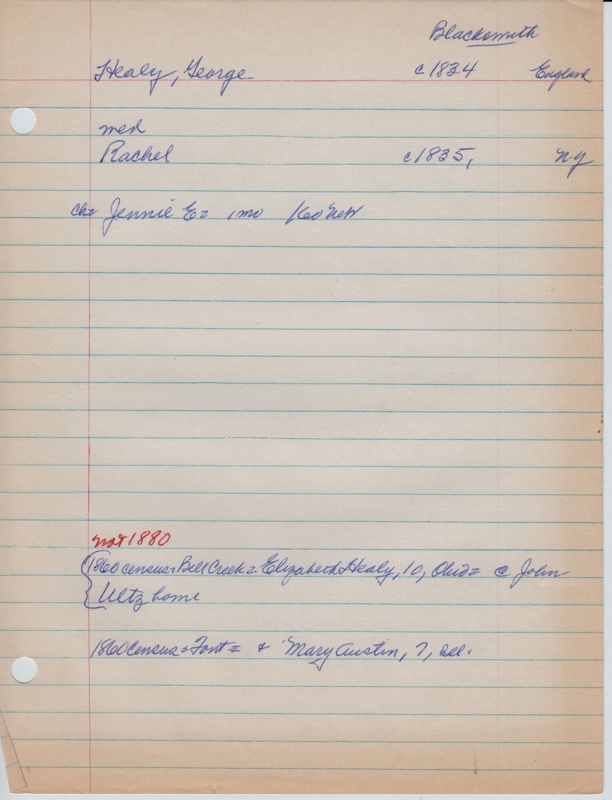 Blacksmith
Healy, George c1834 England
med
Rachel c1835, NY
ch= Jennie E= 1mo
not 1880
1860 census= Bell Creek= Elizabeth Healy, 10, Ohio= @ John
Ultz home
1860 Census= Font= & Mary Austin, 7,